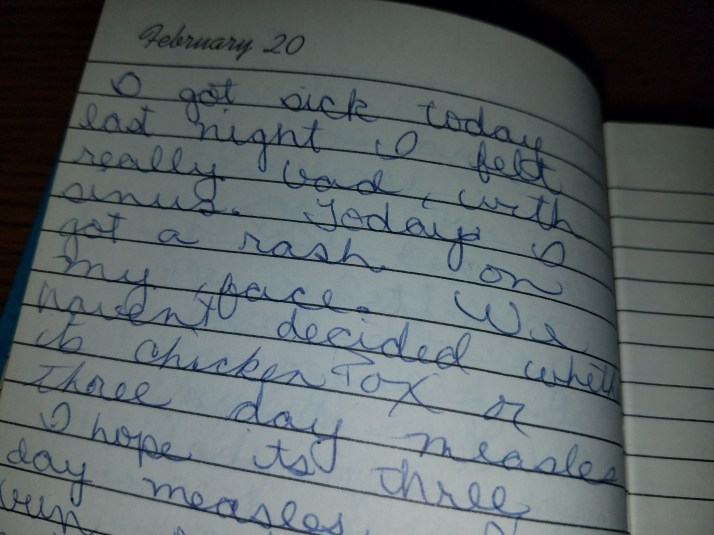 February 20
I got sick today
last night I felt
really bad, with
sinus. Today I
got a rash on
my face. We
haven't decided wheth
its chicken Pox or
three day measles
I hope its three
day measles.